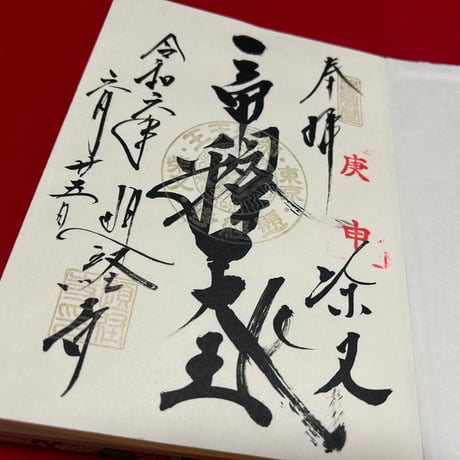 奉拝
庚申
柴又
帝釋天王
令和六年
六月廿五日
題経寺
東京